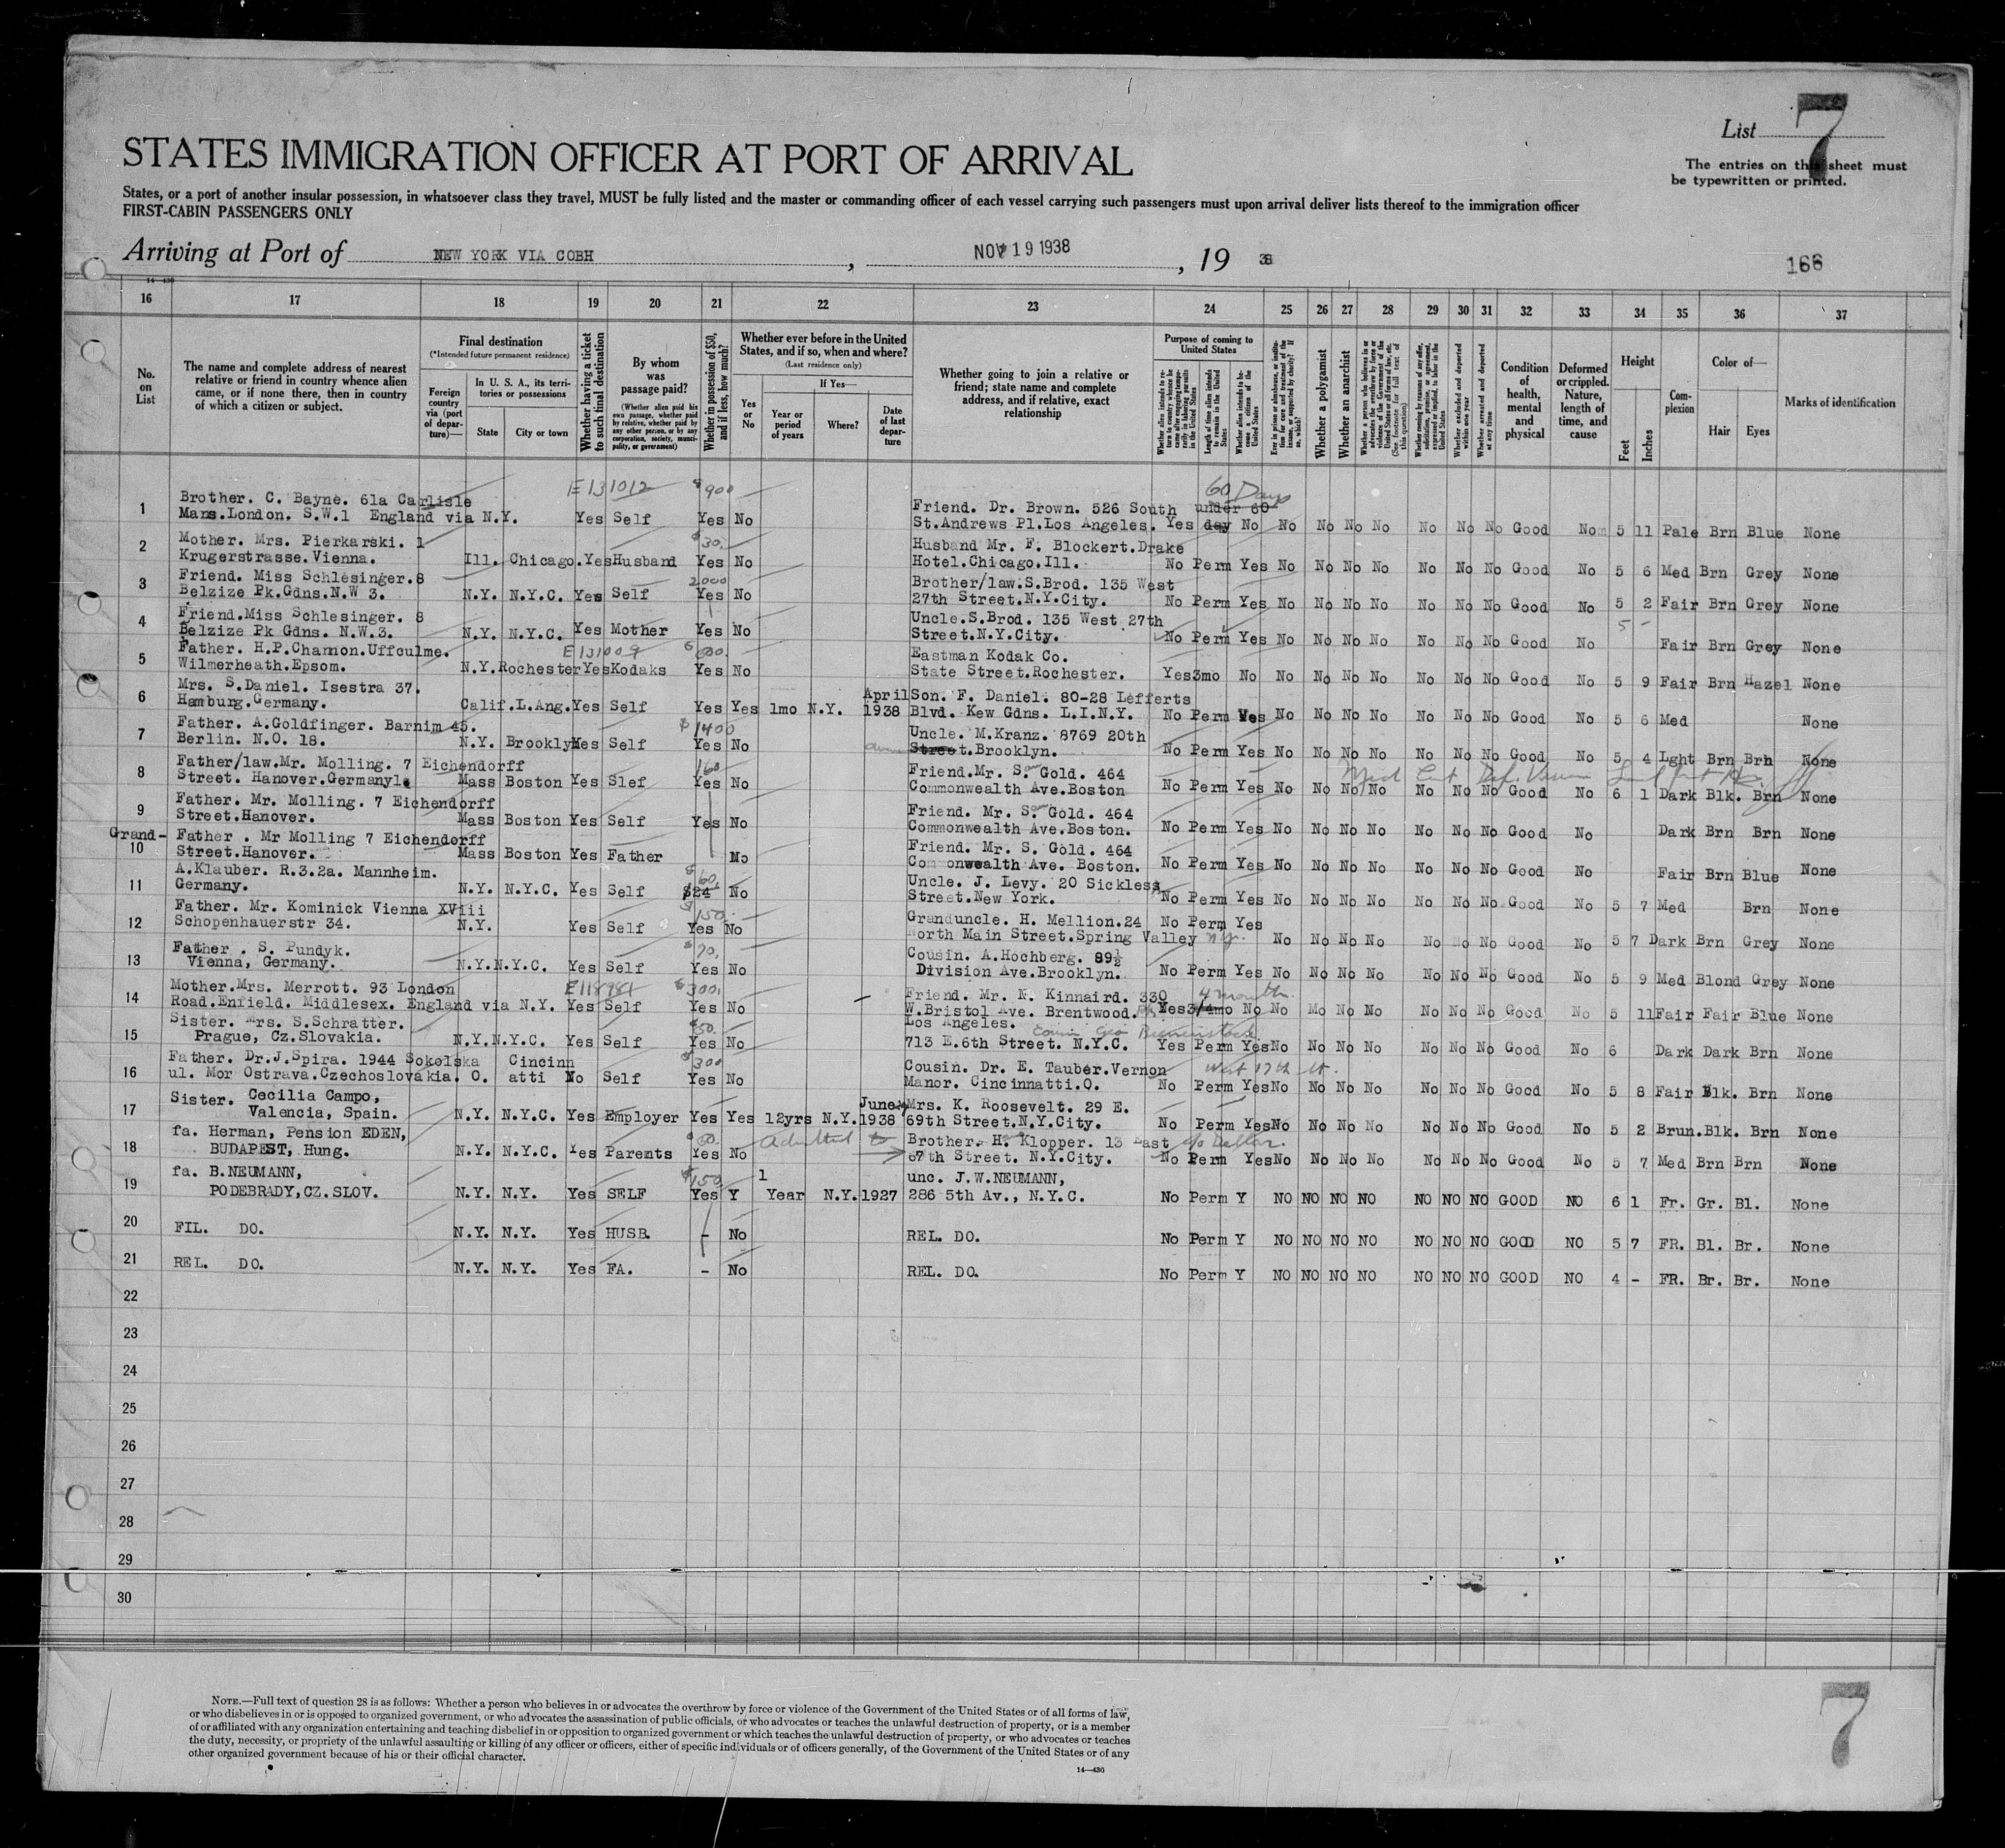 List 7
STATES IMMIGRATION OFFICER AT PORT OF ARRIVAL
The entries on this sheet must
be typewritten or printed.
States, or a port of another insular possession, in whatsoever class they travel, MUST be fully listed and the master or commanding officer of each vessel carrying such passengers must upon arrival deliver lists thereof to the immigration officer
FIRST-CABIN PASSENGERS ONLY
Arriving at Port of NEW YORK VIA COBH, NOV 19 1938, 19 38
166
14-430
16 17 18 19 20 21 22 23 24 25 26 27 28 29 30 31 32 33 34 35 36 37
No. on List
The name and complete address of nearest relative or friend in country whence alien came, or if none there, then in country of which a citizen or subject.
Final destination
(*Intended future permanent residence)
Foreign country via (port of departure)—
In U. S. A., its territories or possessions
State
City or town
Whether having a ticket to such final destination
By whom was passage paid?
(Whether alien paid his own passage, whether paid by relative, whether paid by any other person, or by any corporation, society, municipality, or government)
Whether in possession of $50, and if less, how much?
Whether ever before in the United States, and if so, when and where?
(Last residence only)
Yes or No
If Yes—
Year or period of years
Where?
Date of last departure
Whether going to join a relative or friend; state name and complete address, and if relative, exact relationship
Purpose of coming to United States
Whether alien intends to return to country whence he came after engaging temporarily in laboring pursuits in the United States
Length of time alien intends to remain in the United States
Whether alien intends to become a citizen of the United States
Ever in prison or almshouse, or institution for care and treatment of the insane, or supported by charity? If so, which?
Whether a polygamist
Whether an anarchist
Whether excluded and deported within one year
Whether arrested and deported at any time
Condition of health, mental and physical
Deformed or crippled. Nature, length of time, and cause
Height
Feet
Inches
Complexion
Color of—
Hair
Eyes
Marks of identification
E131012 $900 60 Days
1 Brother. C. Bayne. 61a Carlisle
Mans.London. S.W.1 England via N.Y. Yes Self Yes No Friend. Dr. Brown. 526 South under 60
St.Andrews Pl.Los Angeles. Yes day No No No No No No No No Good No 5 11 Pale Brn Blue None
2 Mother. Mrs. Pierkarski. 1 $30. Husband Mr. F. Blockert.Drake
Krugerstrasse.Vienna. Ill. Chicago. Yes Husband Yes No Hotel.Chicago.Ill. No Perm Yes No No No No No No No Good No 5 6 Med Brn Grey None
3 Friend. Miss Schlesinger.8 2000 Brother/law.S.Brod. 135 West
Belzize Pk.Gdns.N.W 3. N.Y. N.Y.C. Yes Self Yes No 27th Street.N.Y.City. No Perm Yes No No No No No No No Good No 5 2 Fair Brn Grey None
4 Friend.Miss Schlesinger. 8 Uncle.S.Brod. 135 West 27th 5 -
Belzize Pk Gdns. N.W.3. N.Y. N.Y.C. Yes Mother Yes No Street.N.Y.City. No Perm Yes No No No No No No No Good No Fair Brn Grey None
5 Father. H.P.Channon.Uffculme. E131009 $600. Eastman Kodak Co.
Wilmerheath.Epsom. N.Y. Rochester Yes Kodaks Yes No State Street.Rochester. Yes 3mo No No No No No No No No Good No 5 9 Fair Brn Hazel None
6 Mrs. S.Daniel. Isestra 37. April Son. F. Daniel. 80-28 Lefferts
Hamburg.Germany. Calif. L.Ang. Yes Self Yes Yes 1mo N.Y. 1938 Blvd. Kew Gdns. L.I.N.Y. No Perm Yes No No No No No No No Good No 5 6 Med None
7 Father. A.Goldfinger. Barnim 45. $1400 Uncle. M.Kranz. 8769 20th
Berlin. N.O. 18. N.Y. Brooklyn Yes Self Yes No Street.Brooklyn. No Perm Yes No No No No No No No Good No 5 4 Lght Brn Brn None
8 Father/law.Mr. Molling. 7 Eichendorff 160 Friend.Mr. S. Gold. 464
Street. Hanover.Germany. Mass Boston Yes Slef Yes No Commonwealth Ave.Boston No Perm Yes No No No No No No No Good No 6 1 Dark Blk. Brn None
9 Father. Mr. Molling. 7 Eichendorff Friend. Mr. S. Gold. 464
Street.Hanover. Mass Boston Yes Self Yes No Commonwealth Ave.Boston. No Perm Yes No No No No No No No Good No Dark Brn Brn None
10 Grand-Father . Mr Molling 7 Eichendorff Friend. Mr. S. Gold. 464
Street.Hanover. Mass Boston Yes Father No Commonwealth Ave. Boston. No Perm Yes No No No No No No No Good No Fair Brn Blue None
11 A.Klauber. R.3.2a. Mannheim. $60. Uncle. J. Levy. 20 Sickless
Germany. N.Y. N.Y.C. Yes Self $24 No Street.New York. No Perm Yes No No No No No No No Good No 5 7 Med Brn None
12 Father. Mr. Kominick Vienna XViii $150. Granduncle. H. Mellion.24 No Perm Yes
Schopenhauerstr 34. N.Y. Yes Self Yes No North Main Street.Spring Valley N.Y. No No No No No No No Good No 5 7 Dark Brn Grey None
13 Father . S. Pundyk. $70. Cousin. A.Hochberg. 89½
Vienna, Germany. N.Y. N.Y.C. Yes Self Yes No Division Ave.Brooklyn. No Perm Yes No No No No No No No Good No 5 9 Med Blond Grey None
14 Mother.Mrs. Merrott. 93 London E118981 $300. Friend. Mr. N. Kinnaird. 330 4 month
Road.Enfield. Middlesex. England via N.Y. Yes Self Yes No W.Bristol Ave. Brentwood. Yes 3/4mo No No No No No No No No Good No 5 11 Fair Fair Blue None
Los Angeles.
15 Sister. Mrs. S.Schratter. $50.
Prague, Cz.Slovakia. N.Y. N.Y.C. Yes Self Yes No 713 E.6th Street. N.Y.C. Yes Perm Yes No No No No No No No Good No 6 Dark Dark Brn None
16 Father. Dr.J.Spira. 1944 Sokolska Cincinn $300 Cousin. Dr. E. Tauber.Vernon West 17th st.
ul. Mor Ostrava.Czechoslovakia. O. atti No Self Yes No Manor. Cincinnatti.O. No Perm Yes No No No No No No No Good No 5 8 Fair Blk. Brn None
17 Sister. Cecilia Campo, June Mrs. K. Roosevelt. 29 E.
Valencia, Spain. N.Y. N.Y.C. Yes Employer Yes Yes 12yrs N.Y. 1938 69th Street.N.Y.City. No Perm Yes No No No No No No No Good No 5 2 Brun. Blk. Brn None
18 fa. Herman, Pension EDEN, $50. Admitted to Brother. H. Klopper. 13 East
BUDAPEST, Hung. N.Y. N.Y.C. Yes Parents Yes No 67th Street. N.Y.City. No Perm Yes No No No No No No No Good No 5 7 Med Brn Brn None
19 fa. B.NEUMANN, $150 1 unc. J.W.NEUMANN,
PODEBRADY,CZ.SLOV. N.Y. N.Y. Yes SELF Yes Y Year N.Y. 1927 286 5th Av., N.Y.C. No Perm Y NO NO NO NO NO NO NO GOOD NO 6 1 Fr. Gr. Bl. None
20 FIL. DO. N.Y. N.Y. Yes HUSB. - No REL. DO. No Perm Y NO NO NO NO NO NO NO GOOD NO 5 7 FR. Bl. Br. None
21 REL. DO. N.Y. N.Y. Yes FA. - No REL. DO. No Perm Y NO NO NO NO NO NO NO GOOD NO 4 - FR. Br. Br. None
22
23
24
25
26
27
28
29
30
NOTE.—Full text of question 28 is as follows: Whether a person who believes in or advocates the overthrow by force or violence of the Government of the United States or of all forms of law,
or who disbelieves in or is opposed to organized government, or who advocates the assassination of public officials, or who advocates or teaches the unlawful destruction of property, or is a member
of or affiliated with any organization entertaining and teaching disbelief in or opposition to organized government or which teaches the unlawful destruction of property, or who advocates or teaches
the duty, necessity, or propriety of the unlawful assaulting or killing of any officer or officers, either of specific individuals or of officers generally, of the Government of the United States or of any
other organized government because of his or their official character.
14—430
7